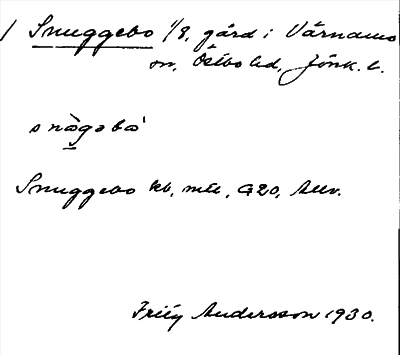 / Snuggebo 1/8, gård i Värnamo
sn, Östbo hd, Jönk. l.
snògəbò
Snuggebo kb, mtl, G20, Allv.
Frity Andersson 1930.